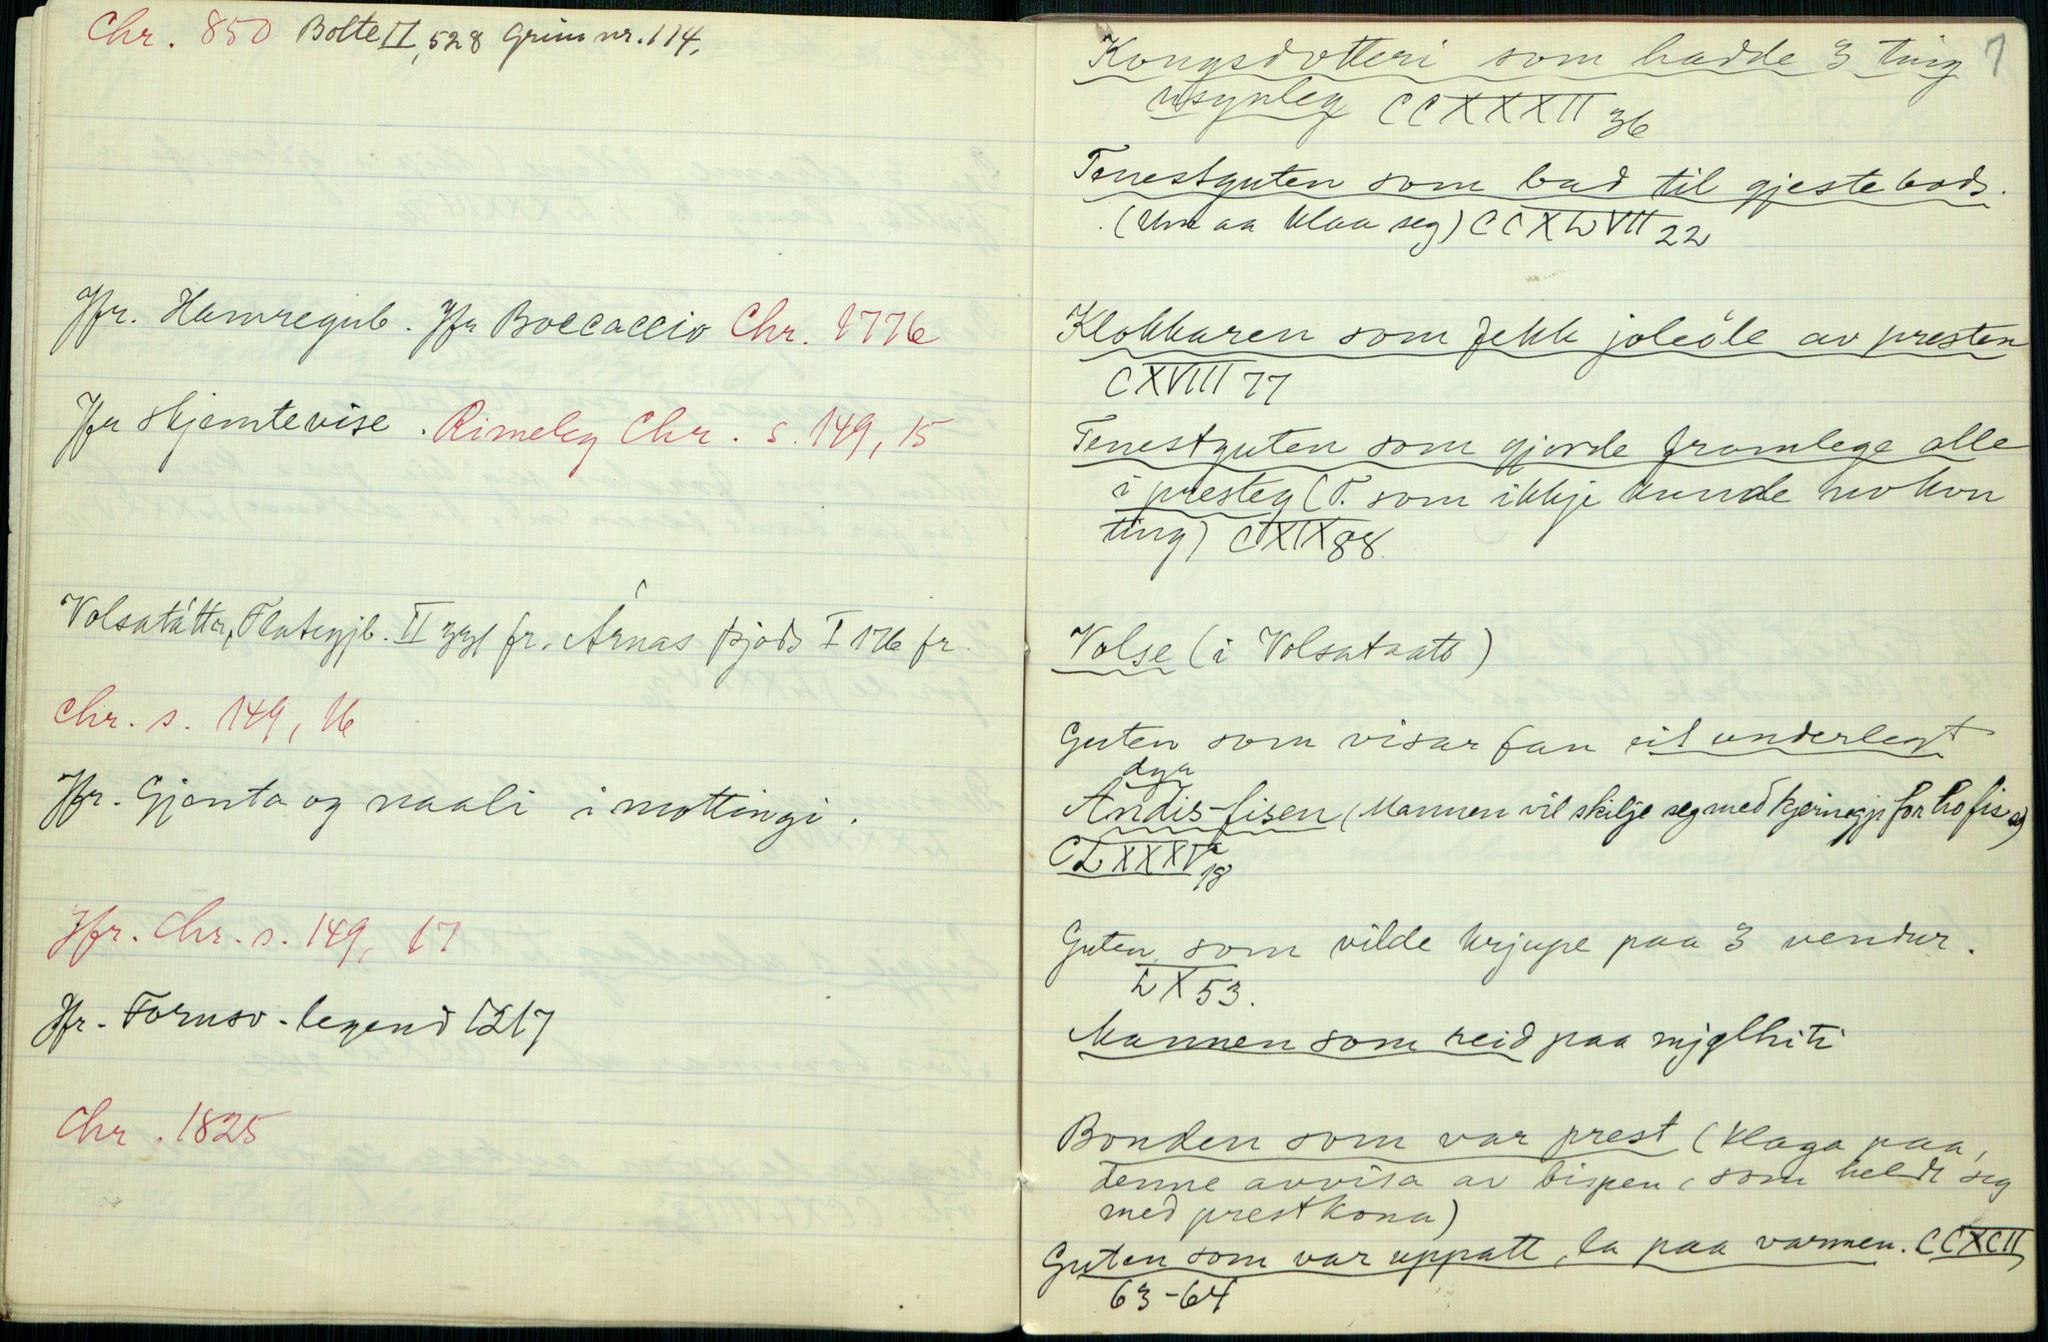 Chr. 850 Bolte II, 528 Grim nr. 114.
Jfr. Hamregub. Jfr Boccaccio Chr. 1776
Jfr skjemtevise. Rimeleg Chr. s. 149, 15
Volsatáttr, Flateyjb. II 331 fr. Árnas þjóds I 176 fr.
Chr. s. 149, 16
Jfr. Gjenta og naali i mottingi.
Jfr. Chr. s. 149, 17
Jfr. Fornsv. legend 1217
Chr. 1825
7
Kongsdotteri som hadde 3 ting
usynleg CCXXXII 36
Tenestguten som bad til gjestebods.
(Um aa klaa seg) CCXLVII 22
Klokkaren som fekk joleöle av presten
CXVIII 77
Tenestguten som gjorde framlege alle
i presteg (T. som ikkje kunde nokon
ting) CXIX 88
Volse (i Volsataatt)
Guten som visar fan eit underlegt
dyr
Andis-fisen (Mannen vil skilje seg med kjeringji for ho fis
CLXXXV 18
Guten som vilde krjupe paa 3 vendur.
LX 53.
Mannen som reid paa mjølhiti
Bonden som var prest (klaga paa,
denne avvisa av bispen, som heldt seg
med prestkona)
Guten som var uppatt, la paa varmen. CCXCII
63-64